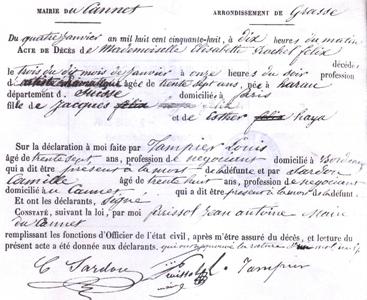 MAIRIE DU Cannet ARRONDISSEMENT DE Grasse
Du quatre janvier an mil huit cent cinquante-huit, à dix heures du matin
ACTE DE DÉCÈS de Mademoiselle Elisabeth Rachel felix
décédée
le trois du dit mois de janvier à onze heures du soir profession
d'artiste dramatique âgée de trente sept ans, née à
département d. Suisse domiciliée à Paris
fille de Jacques felix
et de Esther felix haya
Sur la déclaration à moi faite par Tampier Louis
âgé de trente sept ans, profession de négociant domicilié à Bordeaux
qui a dit être présent à la mort de la défunte, et par Sardou
Camille âgé de trente huit ans, profession de négociant
domicilié au Cannet qui a dit être présent à la mort de la défunte.
Et ont les déclarants, signé
CONSTATÉ, suivant la loi, par moi Jean antoine Maire
du Cannet
remplissant les fonctions d'Officier de l'état civil, après m'être assuré du décès, et lecture du
présent acte a été donnée aux déclarants,
C Sardou Tampier